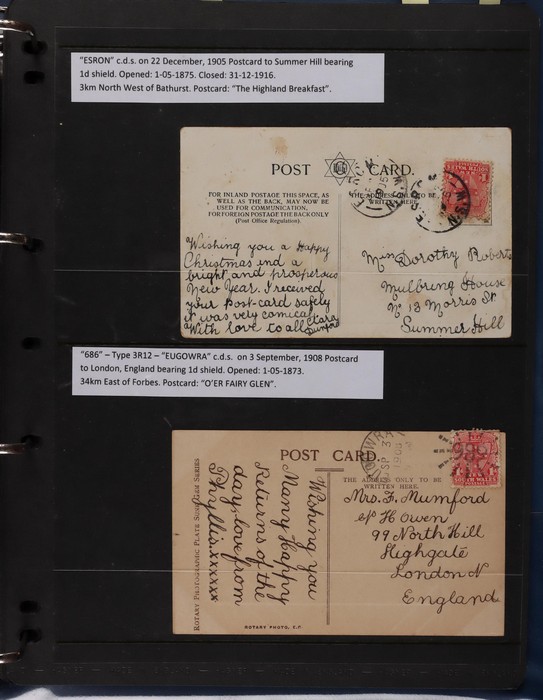 "ESRON" c.d.s. on 22 December, 1905 Postcard to Summer Hill bearing
1d shield. Opened: 1-05-1875. Closed: 31-12-1916.
3km North West of Bathurst. Postcard: "The Highland Breakfast".
POST CARD.
FOR INLAND POSTAGE THIS SPACE, AS
WELL AS THE BACK, MAY NOW BE
USED FOR COMMUNICATION,
FOR FOREIGN POSTAGE THE BACK ONLY
(Post Office Regulation).
THE ADDRESS ONLY TO BE
WRITTEN HERE.
N.S.W
Wishing you a Happy
Christmas and a
bright and prosperous
New Year. I received
your Post-card safely
it was very comical
With love to all Clara
Miss Dorothy Roberts
Mulbring House
No 13 Morris St
Summer Hill
"686" – Type 3R12 – "EUGOWRA" c.d.s. on 3 September, 1908 Postcard
to London, England bearing 1d shield. Opened: 1-05-1873.
34km East of Forbes. Postcard: "O'ER FAIRY GLEN".
POST CARD.
THE ADDRESS ONLY TO BE
WRITTEN HERE.
SP 3
1908
686
ROTARY PHOTOGRAPHIC PLATE SUNK GEM SERIES
Wishing you
Many Happy
Returns of the
day, love from
Phyllis.xxxxxx
Mrs. F. Mumford
c/o H Owen
99 North Hill
Highgate
London N
England
ROTARY PHOTO, E.C.